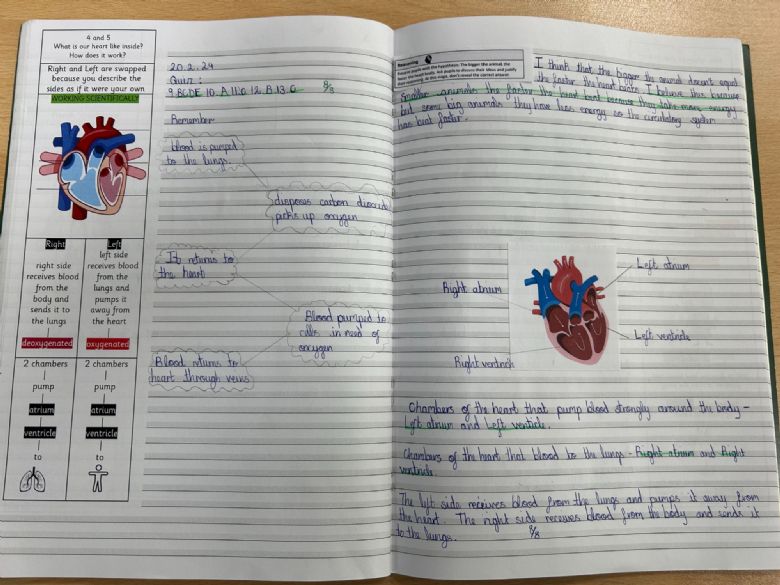 4 and 5
What is our heart like inside?
How does it work?
Right and Left are swapped
because you describe the
sides as if it were your own
WORKING SCIENTIFICALLY
Right
right side
receives blood
from the
body and
sends it to
the lungs
deoxygenated
2 chambers
pump
atrium
ventricle
to
Left
left side
receives blood
from the
lungs and
pumps it
away from
the heart
oxygenated
2 chambers
pump
atrium
ventricle
to
20.2.24
Quiz:
9.BCDE 10. A 11.C 12. B 13. C 8/8
Remember
blood is pumped
to the lungs.
disposes carbon dioxide
picks up oxygen
It returns to
the heart
Blood pumped to
cells in need of
oxygen
Blood returns to
heart through veins
Reasoning
Present pupils with the hypothesis: The bigger the animal, the
faster the heart beats. Ask pupils to discuss their ideas and justify
their reasoning. At this stage, don't reveal the correct answer!
I think that the bigger the animal doesn't equal
the faster the heart beats. I believe this because
smaller animals the faster the heart beat because they take more energy
but some big animals they have less energy so the circulatory system
has beat faster.
Right atrium
Left atrium
Left ventricle
Right ventricle
Chambers of the heart that pump blood strongly around the body -
Left atrium and Left venticle.
Chambers of the heart that blood to the lungs - Right atrium and Right
ventricle.
The left side receives blood from the lungs and pumps it away from
the heart. The right side receives blood from the body and sends it
to the lungs. 8/8